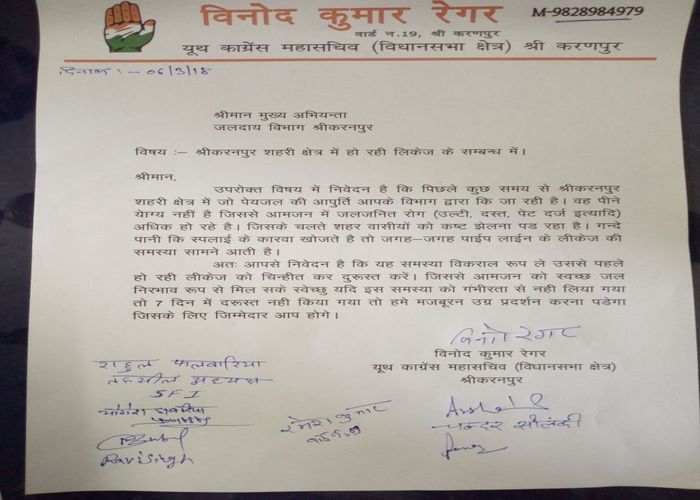 विनोद कुमार रेगर
M-9828984979
वार्ड न.19, श्री करणपुर
यूथ काग्रेंस महासचिव (विधानसभा क्षेत्र) श्री करणपुर
दिनांक :- 06/3/18
श्रीमान मुख्य अभियन्ता
जलदाय विभाग श्रीकरनपुर
विषय :– श्रीकरनपुर शहरी क्षेत्र में हो रही लिकेज के सम्बन्ध में।
श्रीमान्,
उपरोक्त विषय में निवेदन है कि पिछले कुछ समय से श्रीकरनपुर
शहरी क्षेत्र में जो पेयजल की आपुर्ति आपके विभाग द्वारा कि जा रही है। वह पीने
येाग्य नहीं है जिससे आमजन में जलजनित रोग (उल्टी, दस्त, पेट दर्ज इत्यादि)
अधिक हो रहे है। जिसके चलते शहर वासीयों को कष्ट झेलना पड रहा है। गन्दे
पानी कि स्पलाई के कारवा खोजते है तो जगह–जगह पाईप लाईन के लीकेज की
समस्या सामने आती है।
अतः आपसे निवेदन है कि यह समस्या विकराल रूप ले उससे पहले
हो रही लीकेज को चिन्हीत कर दुरूस्त करें। जिससे आमजन को स्वच्छ जल
निरभाव रूप से मिल सके स्वेच्छु यदि इस समस्या को गंभीरता से नही लिया गया
तो 7 दिन में दरूस्त नही किया गया तो हमे मजबूरन उग्र प्रदर्शन करना पडेगा
जिसके लिए जिम्मेदार आप होगे।
विनोद रेगर
विनोद कुमार रेगर
यूथ काग्रेंस महासचिव (विधानसभा क्षेत्र)
श्रीकरनपुर
राहुल वालबारिया
तहसील अध्यक्ष
SFI
रमेश कुमार
चन्दर सोलंकी
Ravi Singh